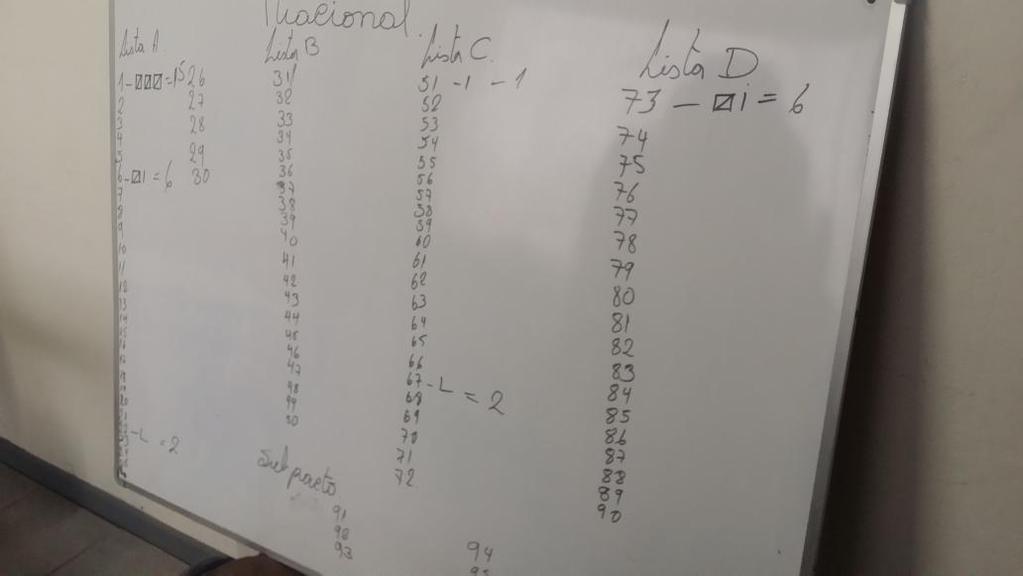 Nacional.
Lista A.
1 - ☐☐☐ = 15
2
3
4
5
6 - ☐1 = 6
7
8
9
10
11
12
13
- L = 2
26
27
28
29
30
Lista B
31
32
33
34
35
36
37
38
39
40
41
42
43
44
45
46
47
48
49
50
Lista C.
51 - 1 - 1
52
53
54
55
56
57
58
59
60
61
62
63
64
65
66
67 - L = 2
68
69
70
71
72
Lista D
73 - ☐1 = 6
74
75
76
77
78
79
80
81
82
83
84
85
86
87
88
89
90
91
92
93
94